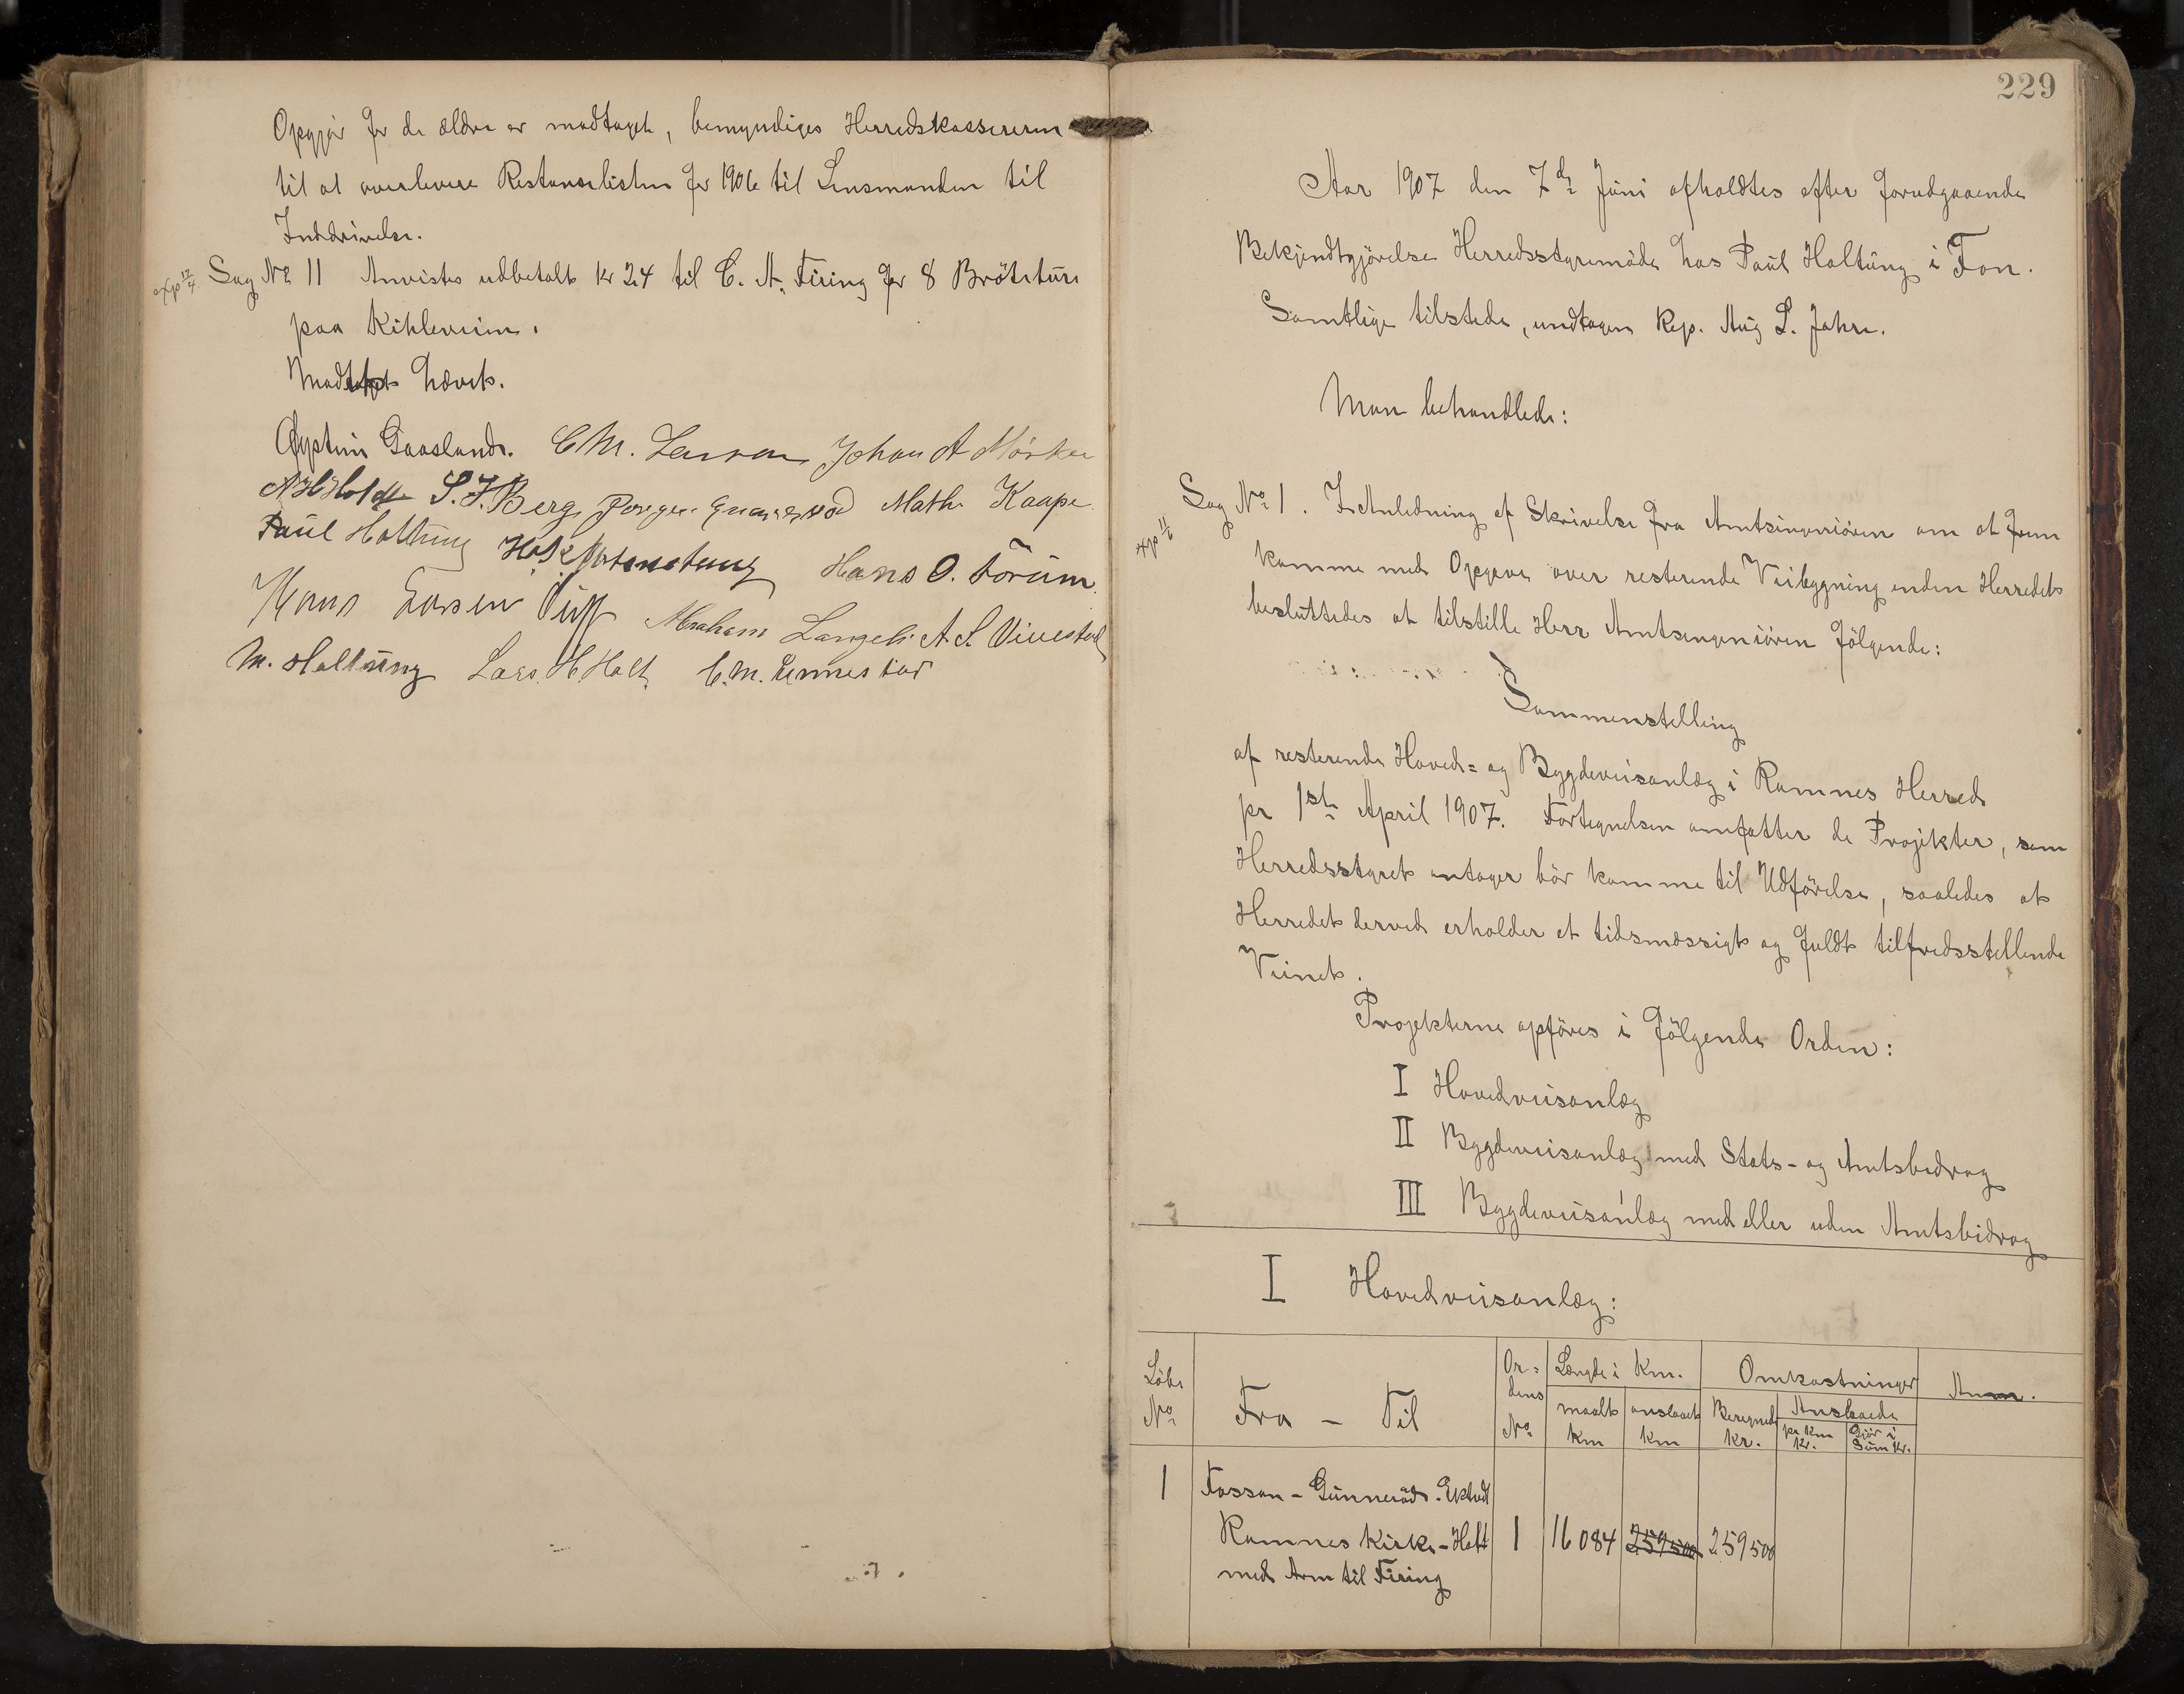 Opgjør for de ældre er modtaget, bemyndiges Herredskassereren
til at overlevere Restanselisten for 1906 til Lensmanden til
Inddrivelse.
exp 17/4. Sag No 11 Anvistes udbetalt kr 24 til C. A. Firing for 8 Brøiteture
paa Kihleveien.
Mødet hævet.
Øystein Gaasland. C M. Larsen Johan A Mørken
A H Holt S. F. Berg Jørgen Gunnerød Math. Kaape
Paul Holtung Hans O. Forum.
Hans Larsen Abraham Langeli A. S. Vivestad
M. Holtung Lars H. Holt. C. M. Linnestad
229
Aar 1907 den 7de Juni afholdtes efter forudgaaende
Bekjendtgjørelse Herredsstyremøde hos Paul Holtung i Fon.
Samtlige tilstede, undtagen Rep. Aug L. Jahre.
Man behandlede:
Sag No 1. I Anledning af Skrivelse fra Amtsingeniøren om at frem
exp 11/6
komme med Opgave over resterende Veibygning inden Herredet
besluttedes at tilstille Herr Amtsingeniøren følgende:
Sammenstelling
af resterende Hoved= og Bygdeveisanlæg i Ramnes Herred
pr 1ste April 1907. Fortegnelsen omfatter de Projekter, som
Herredsstyret antager bør komme til Udførelse, saaledes at
Herredet derved erholder et tidsmæssigt og fuldt tilfredsstellende
Veinet.
Projekterne opføres i følgende Orden:
I Hovedveisanlæg
II Bygdeveisanlæg med Stats- og Amtsbidrag
III Bygdeveisanlæg med eller uden Amtsbidrag
I Hovedveisanlæg:
Løbe No Fra - Til Or=dens No Længde i Km. Omkostninger Anm.
maalt km anslaaet km Beregnede kr. Anslaaede
pr. km kr. Gjør i Sum kr.
1 Fossan - Gunnerød - Ektvedt
Ramnes Kirke - Holt 1 16 084 259 500 259 500
med Arm til Firing